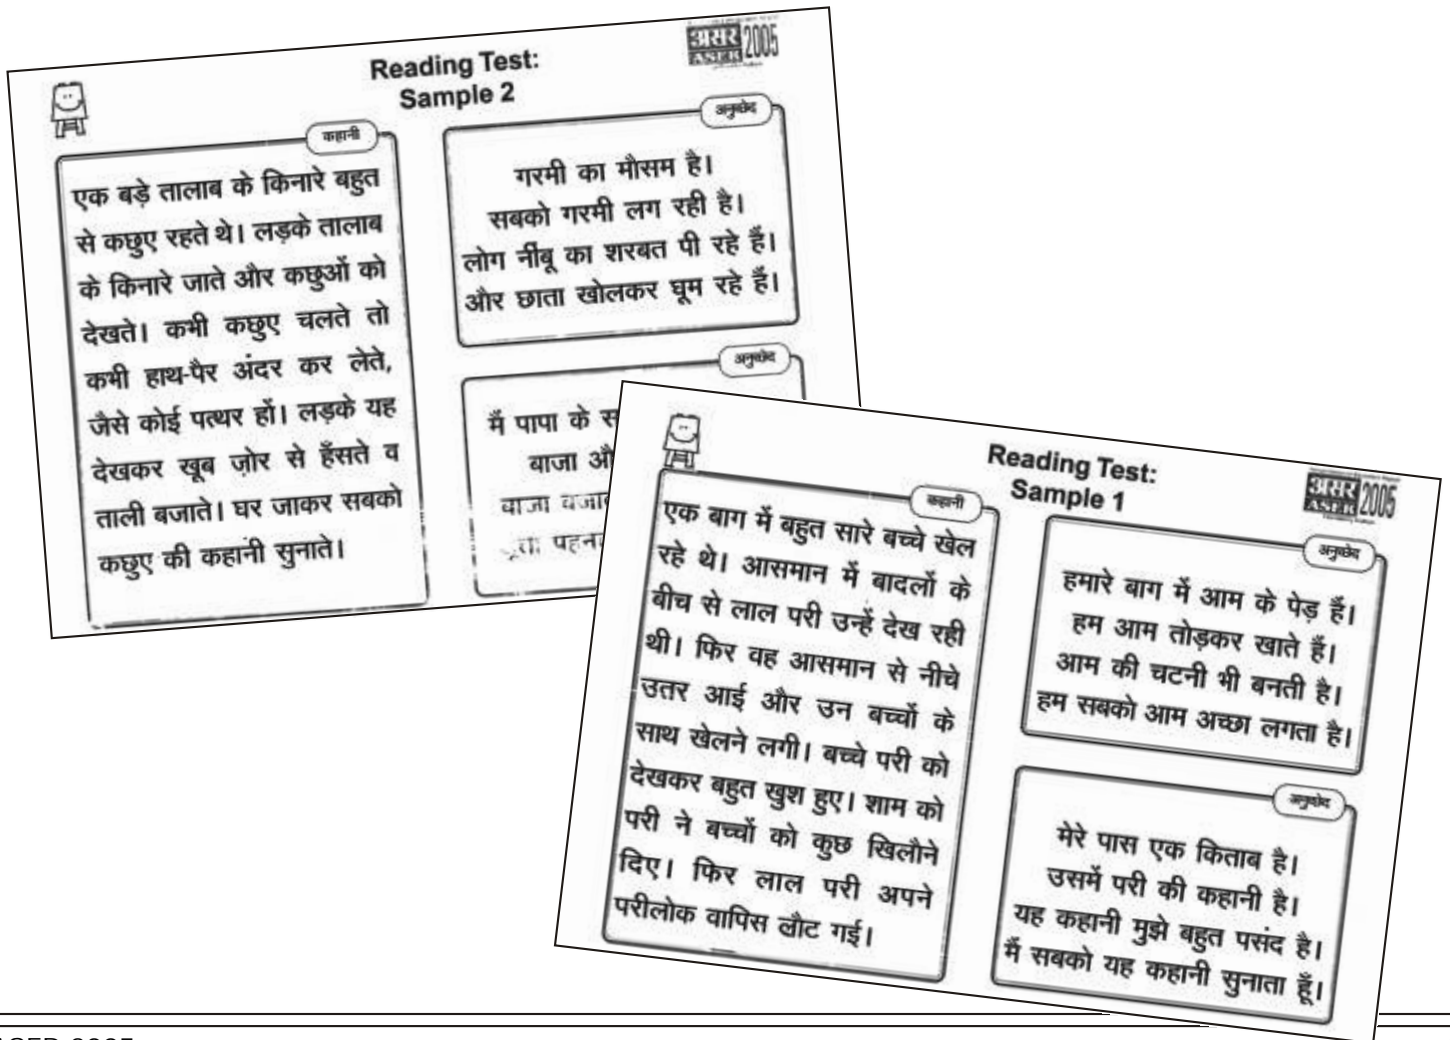 Reading Test:
Sample 2
असर 2005
ASER
कहानी
एक बड़े तालाब के किनारे बहुत
से कछुए रहते थे। लड़के तालाब
के किनारे जाते और कछुओं को
देखते। कभी कछुए चलते तो
कभी हाथ-पैर अंदर कर लेते,
जैसे कोई पत्थर हों। लड़के यह
देखकर खूब ज़ोर से हँसते व
ताली बजाते। घर जाकर सबको
कछुए की कहानी सुनाते।
अनुच्छेद
गरमी का मौसम है।
सबको गरमी लग रही है।
लोग नींबू का शरबत पी रहे हैं।
और छाता खोलकर घूम रहे हैं।
अनुच्छेद
मैं पापा के स
बाजा औ
बाजा बजा
पहन
Reading Test:
Sample 1
असर 2005
कहानी
एक बाग में बहुत सारे बच्चे खेल
रहे थे। आसमान में बादलों के
बीच से लाल परी उन्हें देख रही
थी। फिर वह आसमान से नीचे
उतर आई और उन बच्चों के
साथ खेलने लगी। बच्चे परी को
देखकर बहुत खुश हुए। शाम को
परी ने बच्चों को कुछ खिलौने
दिए। फिर लाल परी अपने
परीलोक वापिस लौट गई।
अनुच्छेद
हमारे बाग में आम के पेड़ हैं।
हम आम तोड़कर खाते हैं।
आम की चटनी भी बनती है।
हम सबको आम अच्छा लगता है।
अनुच्छेद
मेरे पास एक किताब है।
उसमें परी की कहानी है।
यह कहानी मुझे बहुत पसंद है।
मैं सबको यह कहानी सुनाता हूँ।